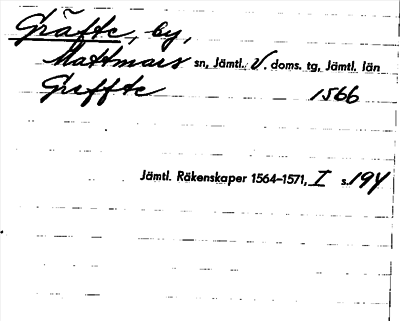 Gräfte, by,
Mattmars sn, Jämtl. V. doms. tg, Jämtl. län
Greffte 1566
Jämtl. Räkenskaper 1564–1571, I s. 194